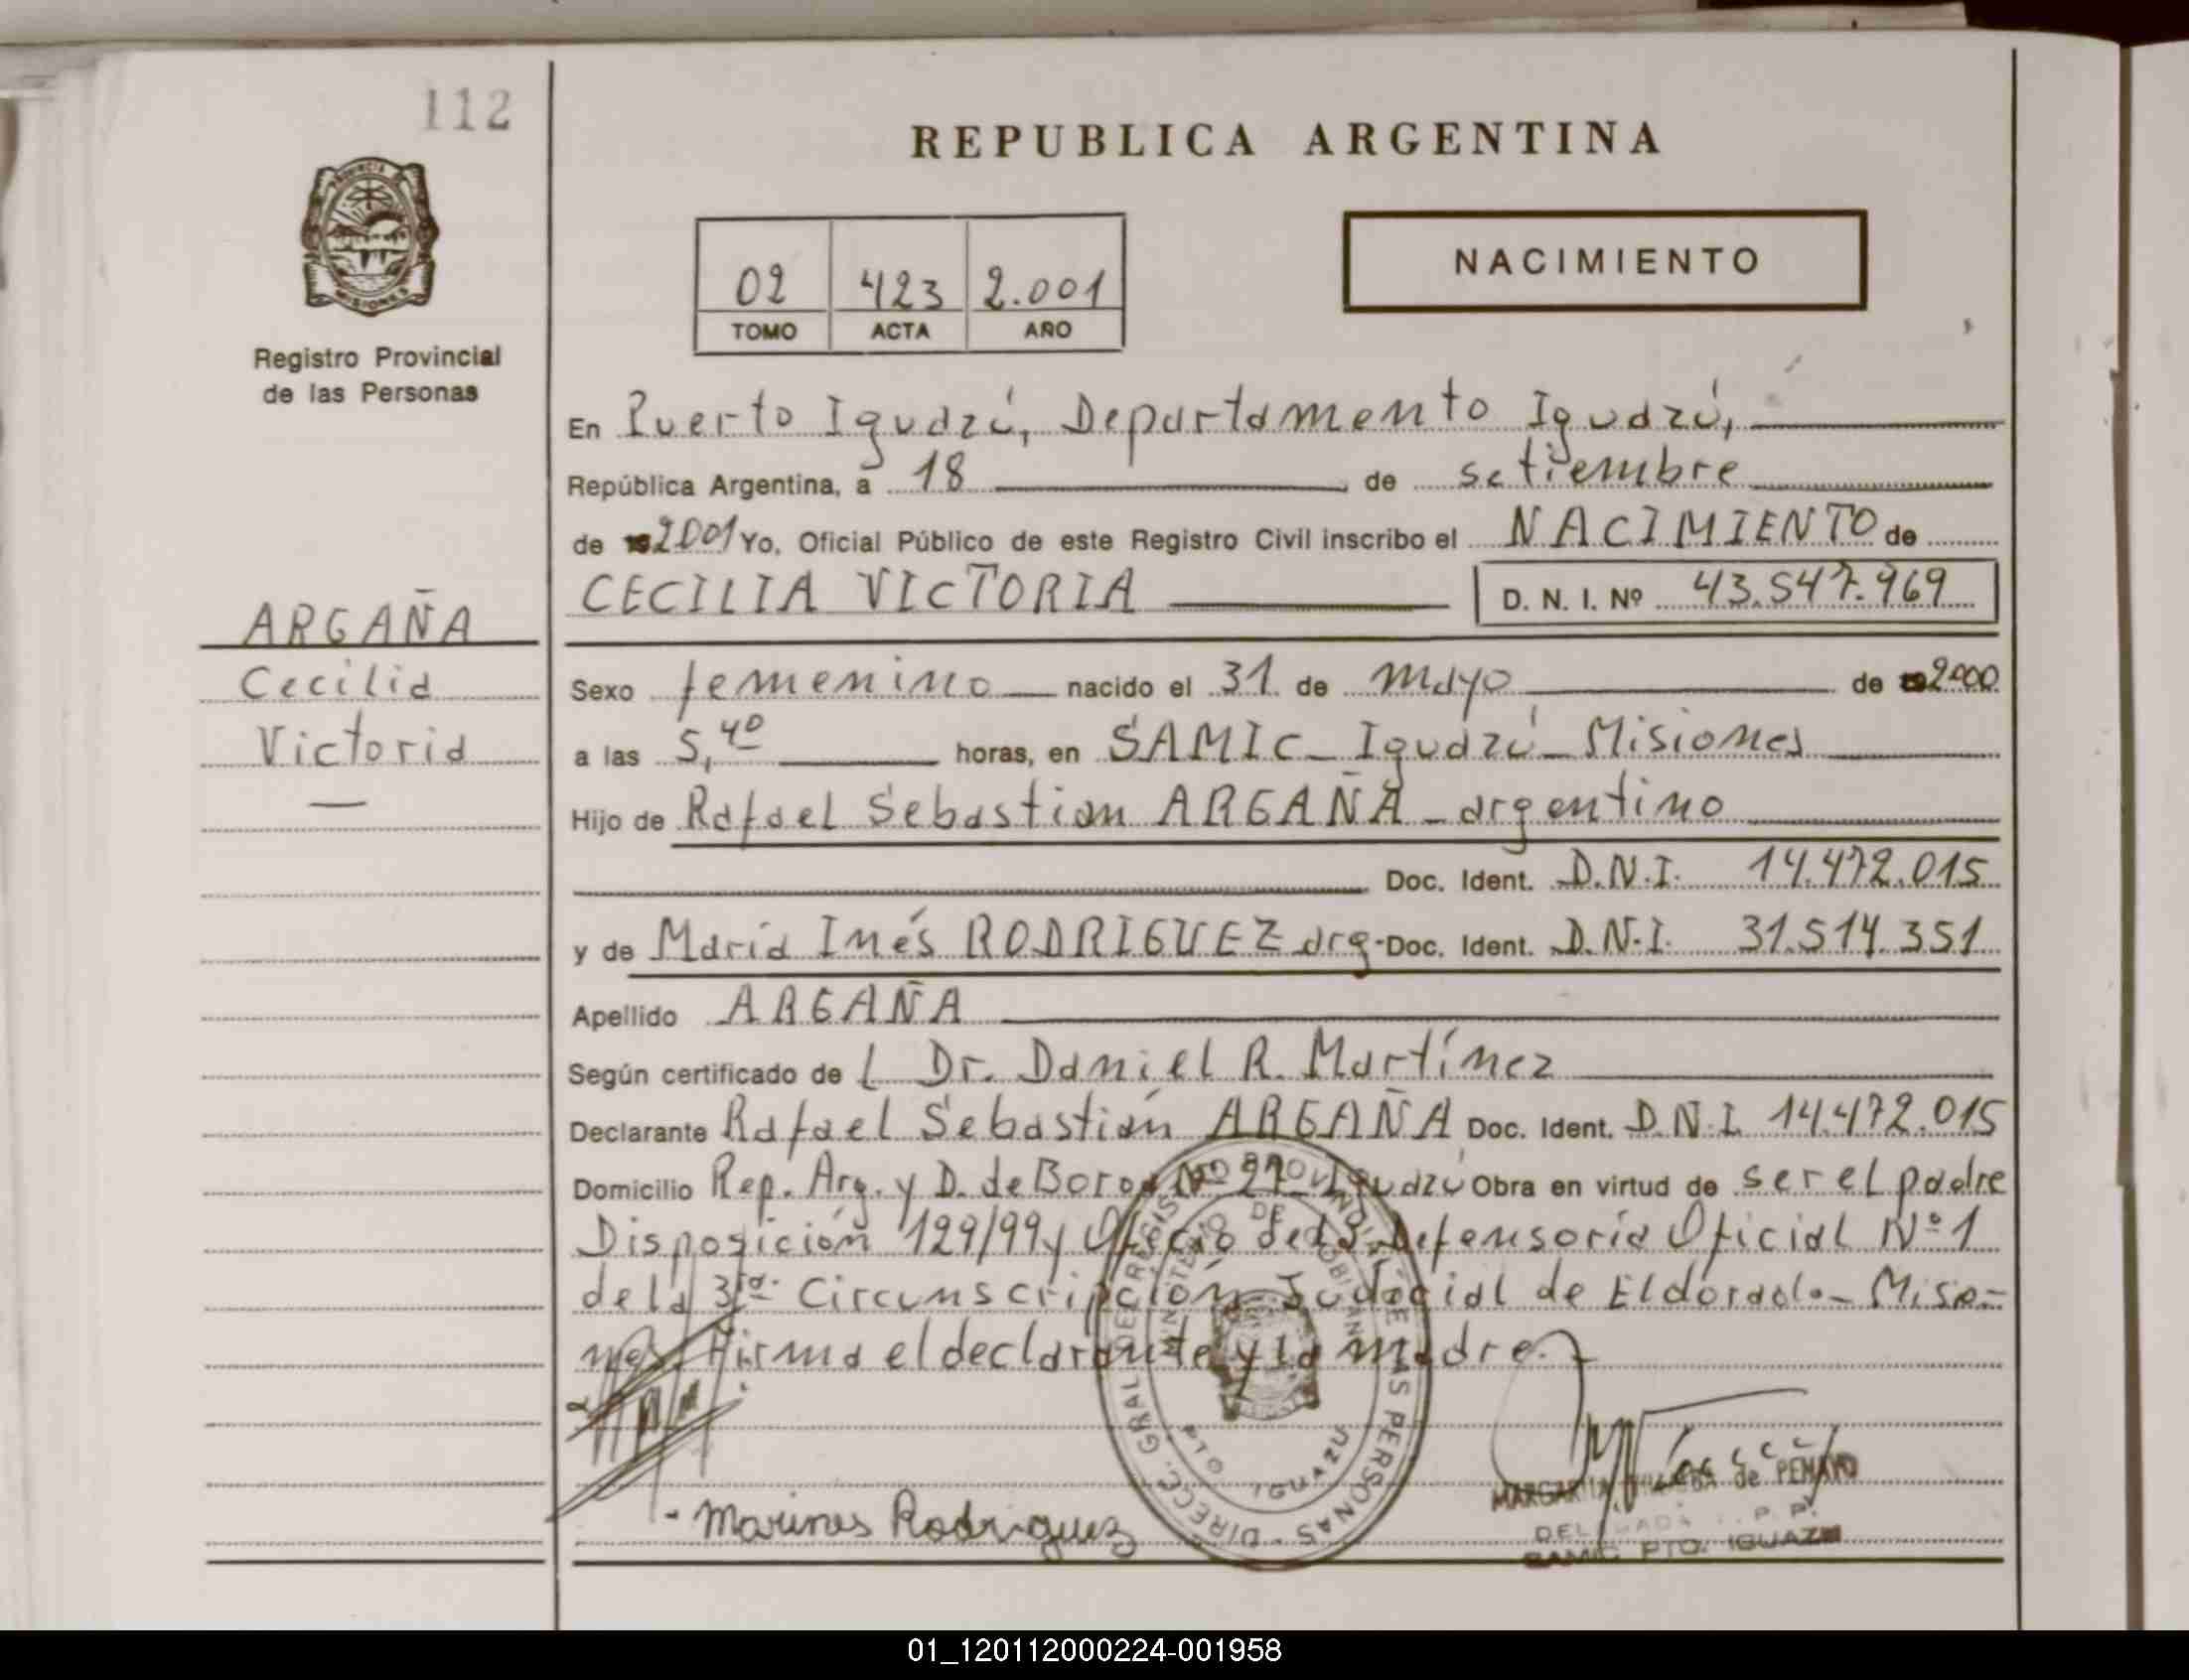 112
REPUBLICA ARGENTINA
PROVINCIA DE
MISIONES
Registro Provincial
de las Personas
02 423 2.001
TOMO ACTA AÑO
NACIMIENTO
En Puerto Iguazú, Departamento Iguazú,
República Argentina, a 18 de setiembre
de 2001 Yo, Oficial Público de este Registro Civil inscribo el NACIMIENTO de
CECILIA VICTORIA D. N. I. Nº 43.547.969
ARGAÑA
Cecilia
Victoria
Sexo femenino nacido el 31 de mayo de 2000
a las 5,40 horas, en SAMIC - Iguazú - Misiones
Hijo de Rafael Sebastian ARGAÑA - argentino
Doc. Ident. D.N.I. 14.472.015
y de María Inés RODRIGUEZ arg. Doc. Ident. D.N.I. 31.514.351
Apellido ARGAÑA
Según certificado de l Dr. Daniel R. Martínez
Declarante Rafael Sebastián ARGAÑA Doc. Ident. D.N.I. 14.472.015
Domicilio Rep. Arg. y D. de Nº 27 - Iguazú Obra en virtud de ser el padre
Disposición 129/99 y Oficio de la Defensoría Oficial Nº 1
de la 3ra. Circunscripción Judicial de Eldorado - Misio-
nes. Firma el declarante y la madre.-
DIRECC. GRAL DE REGISTRO PROVINCIAL DE LAS PERSONAS
MINISTERIO DE GOBIERNO
PTO. IGUAZU
- Marines Rodriguez
MARGARITA de PENAYO
SAMIC PTO. IGUAZU
01_120112000224-001958